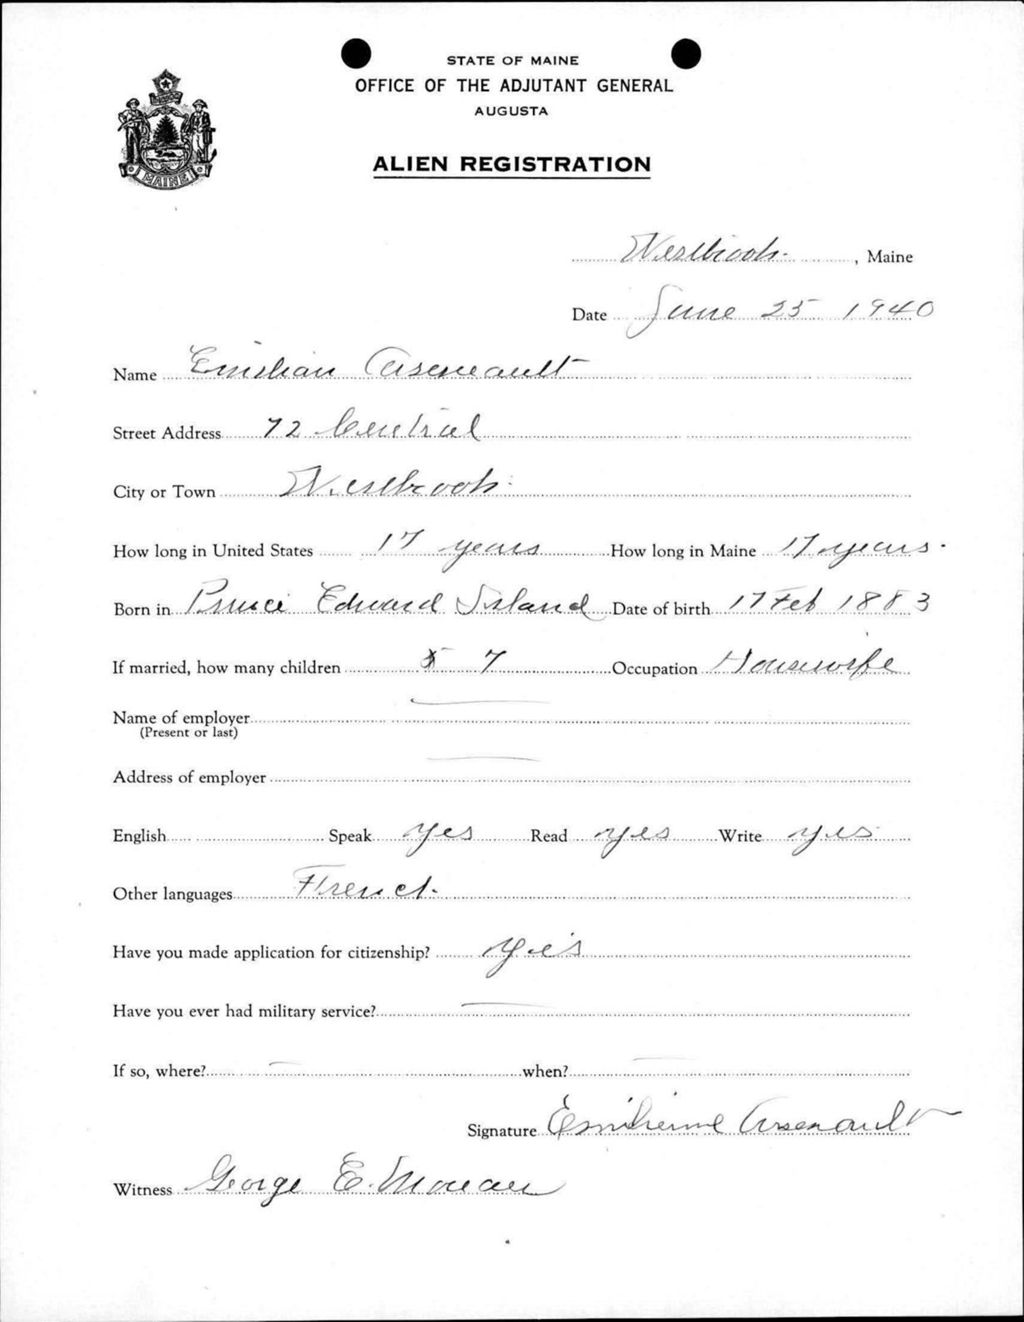 STATE OF MAINE
OFFICE OF THE ADJUTANT GENERAL
AUGUSTA
MAINE
ALIEN REGISTRATION
Westbrook, Maine
Date June 25 1940
Name Emilian Arseneault
Street Address 72 Central
City or Town Westbrook
How long in United States 17 years How long in Maine 17 years
Born in Prince Edward Island Date of birth 17 Feb 1883
If married, how many children 7 Occupation Housewife
Name of employer
(Present or last)
Address of employer
English Speak yes Read yes Write yes
Other languages French
Have you made application for citizenship? yes
Have you ever had military service?
If so, where? when?
Signature Emilienne Arsenault
Witness George E. Moreau